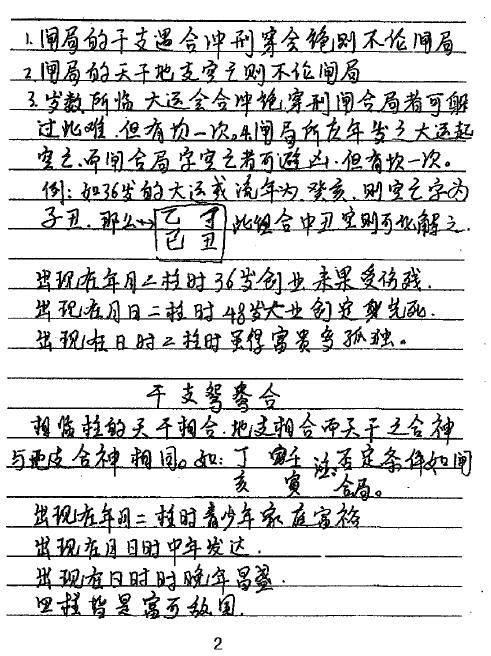 1.闸局的干支遇合冲刑穿会绝则不论闸局
2.闸局的天干地支空亡则不论闸局
3.岁数所临大运会合冲绝穿刑闸合局者可躲
过此难.但有坎一次。4.闸局所在年岁之大运起
空亡.而闸合局字空亡者可避凶.但有坎一次。
例:如36岁的大运或流年为癸亥.则空亡字为
子丑.那么 乙 丁 此组合中丑空则可化解之.
巳 丑
出现在年月二柱时36岁创业未果受伤残.
出现在月日二柱时48岁大业创定身先死.
出现在日时二柱时虽得富贵多孤独。
干支鸳鸯合
相临柱的天干相合.地支相合而天干之合神
与地支合神相同。如: 丁 壬 注:否定条件如闸
亥 寅 合局。
出现在年月二柱时青少年家庭富裕
出现在月日时中年发达.
出现在日时时晚年昌盛.
四柱皆是富可敌国.
2